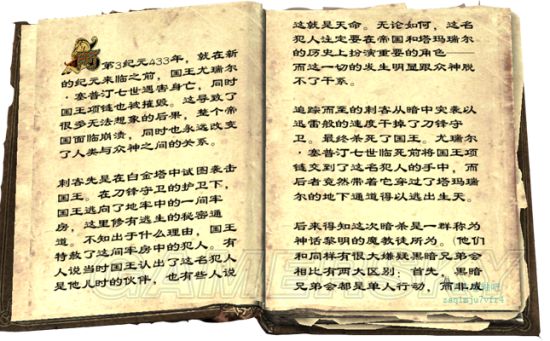 第3纪元433年，就在新
的纪元来临之前，国王尤瑞尔
·塞普汀七世遇害身亡，同时
国王项链也被摧毁。这导致了
很多无法想象的后果，整个帝
国面临崩溃，同时也永远改变
了人类与众神之间的关系。
刺客先是在白金塔中试图袭击
国王。在刀锋守卫的护卫下，
国王逃向了地牢中的一间牢
房，这里修有逃生的秘密通
道。不知出于什么理由，国王
特赦了这间牢房中的犯人。有
人说当时国王认出了这名犯人
是他儿时的伙伴，也有些人说
这就是天命。无论如何，这名
犯人注定要在帝国和塔玛瑞尔
的历史上扮演重要的角色——
而这一切的发生明显跟众神脱
不了干系。
追踪而至的刺客从暗中突袭以
迅雷般的速度干掉了刀锋守
卫。最终杀死了国王。尤瑞尔
·塞普汀七世临死前将国王项
链交到了这名犯人的手中，而
后者竟然带着它穿过了塔玛瑞
尔的地下通道得以逃出生天。
后来得知这次暗杀是一群称为
神话黎明的魔教徒所为。(他们
和同样有很大嫌疑黑暗兄弟会
相比有两大区别：首先，黑暗
兄弟会都是单人行动，而非成
GAMERSKY
zaq1mju7vfr4